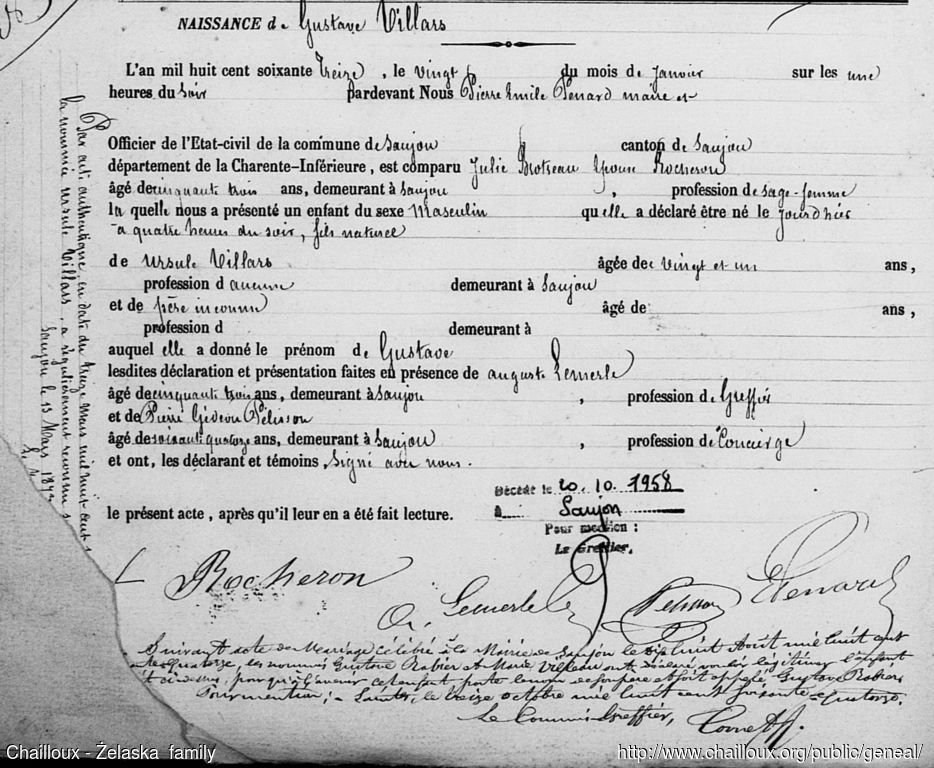 NAISSANCE de Gustave Villars
L'an mil huit cent soixante treize, le vingt du mois de Janvier sur les une
heures du soir pardevant Nous Pierre Emile Penard maire et
Officier de l'Etat-civil de la commune de Saujon canton de Saujon
département de la Charente-Inférieure, est comparu Julie Rocheron
âgé de cinquante trois ans, demeurant à Saujon, profession de sage-femme
la quelle nous a présenté un enfant du sexe Masculin qu'elle a déclaré être né le jour d'hier
à quatre heures du soir, fils naturel
de Ursule Villars âgée de vingt et un ans,
profession d aucune demeurant à Saujon
et de père inconnu âgé de ans,
profession d demeurant à
auquel elle a donné le prénom de Gustave
lesdites déclaration et présentation faites en présence de auguste Lemerle
âgé de cinquante trois ans, demeurant à Saujon, profession de Greffier
et de Pierre Gédéon Pélisson
âgé de soixante quatorze ans, demeurant à Saujon, profession de Concierge
et ont, les déclarant et témoins, signé avec nous.
le présent acte, après qu'il leur en a été fait lecture.
Décédé le 20.10.1958
à Saujon
Pour mention :
Le Greffier,
Par acte authentique en date du treize Mars mil huit cent
la nommée Ursule Villars, a régulièrement reconnu
Saujon le 13 Mars 187
Rocheron
A. Lemerle
Pelisson
E Penard
Suivant acte de Mariage célébré à la Mairie de Saujon le huit Août mil huit cent
quatorze, les nommés Gustave Rabier et Marie Villars ont déclaré vouloir légitimer l'enfant
ci-dessus, pour qu'à l'avenir cet enfant porte le nom de son père et soit appelé Gustave Rabier
Pour mention ; Saintes, le treize octobre mil huit cent soixante-quatorze.
Le Commis Greffier,
Chailloux - Želaska family
http://www.chailloux.org/public/geneal/